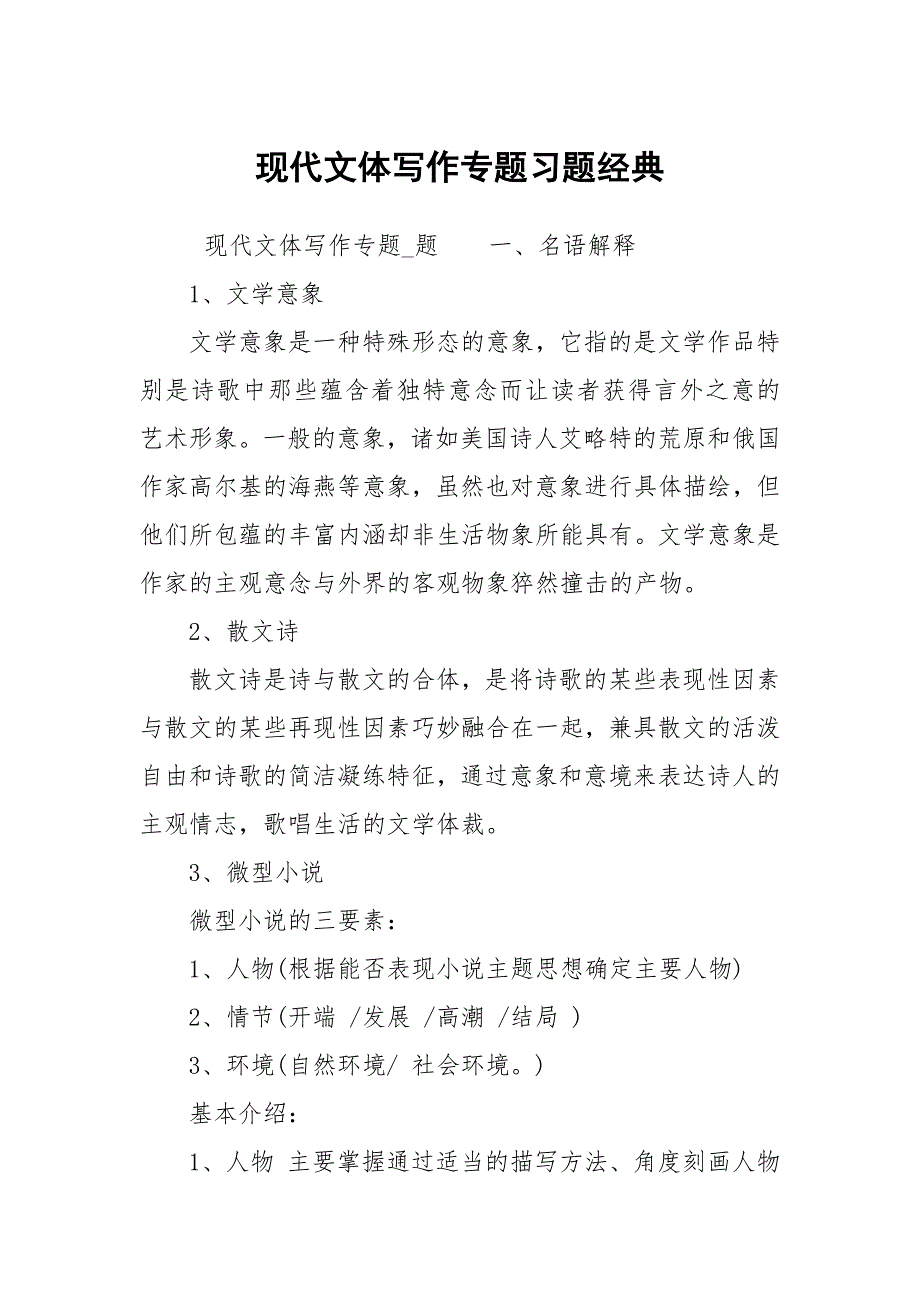 现代文体写作专题习题经典
现代文体写作专题_题 一、名语解释
1、文学意象
文学意象是一种特殊形态的意象，它指的是文学作品特
别是诗歌中那些蕴含着独特意念而让读者获得言外之意的
艺术形象。一般的意象，诸如美国诗人艾略特的荒原和俄国
作家高尔基的海燕等意象，虽然也对意象进行具体描绘，但
他们所包蕴的丰富内涵却非生活物象所能具有。文学意象是
作家的主观意念与外界的客观物象猝然撞击的产物。
2、散文诗
散文诗是诗与散文的合体，是将诗歌的某些表现性因素
与散文的某些再现性因素巧妙融合在一起，兼具散文的活泼
自由和诗歌的简洁凝练特征，通过意象和意境来表达诗人的
主观情志，歌唱生活的文学体裁。
3、微型小说
微型小说的三要素：
1、人物(根据能否表现小说主题思想确定主要人物)
2、情节(开端 /发展 /高潮 /结局 )
3、环境(自然环境/ 社会环境。)
基本介绍：
1、人物 主要掌握通过适当的描写方法、角度刻画人物